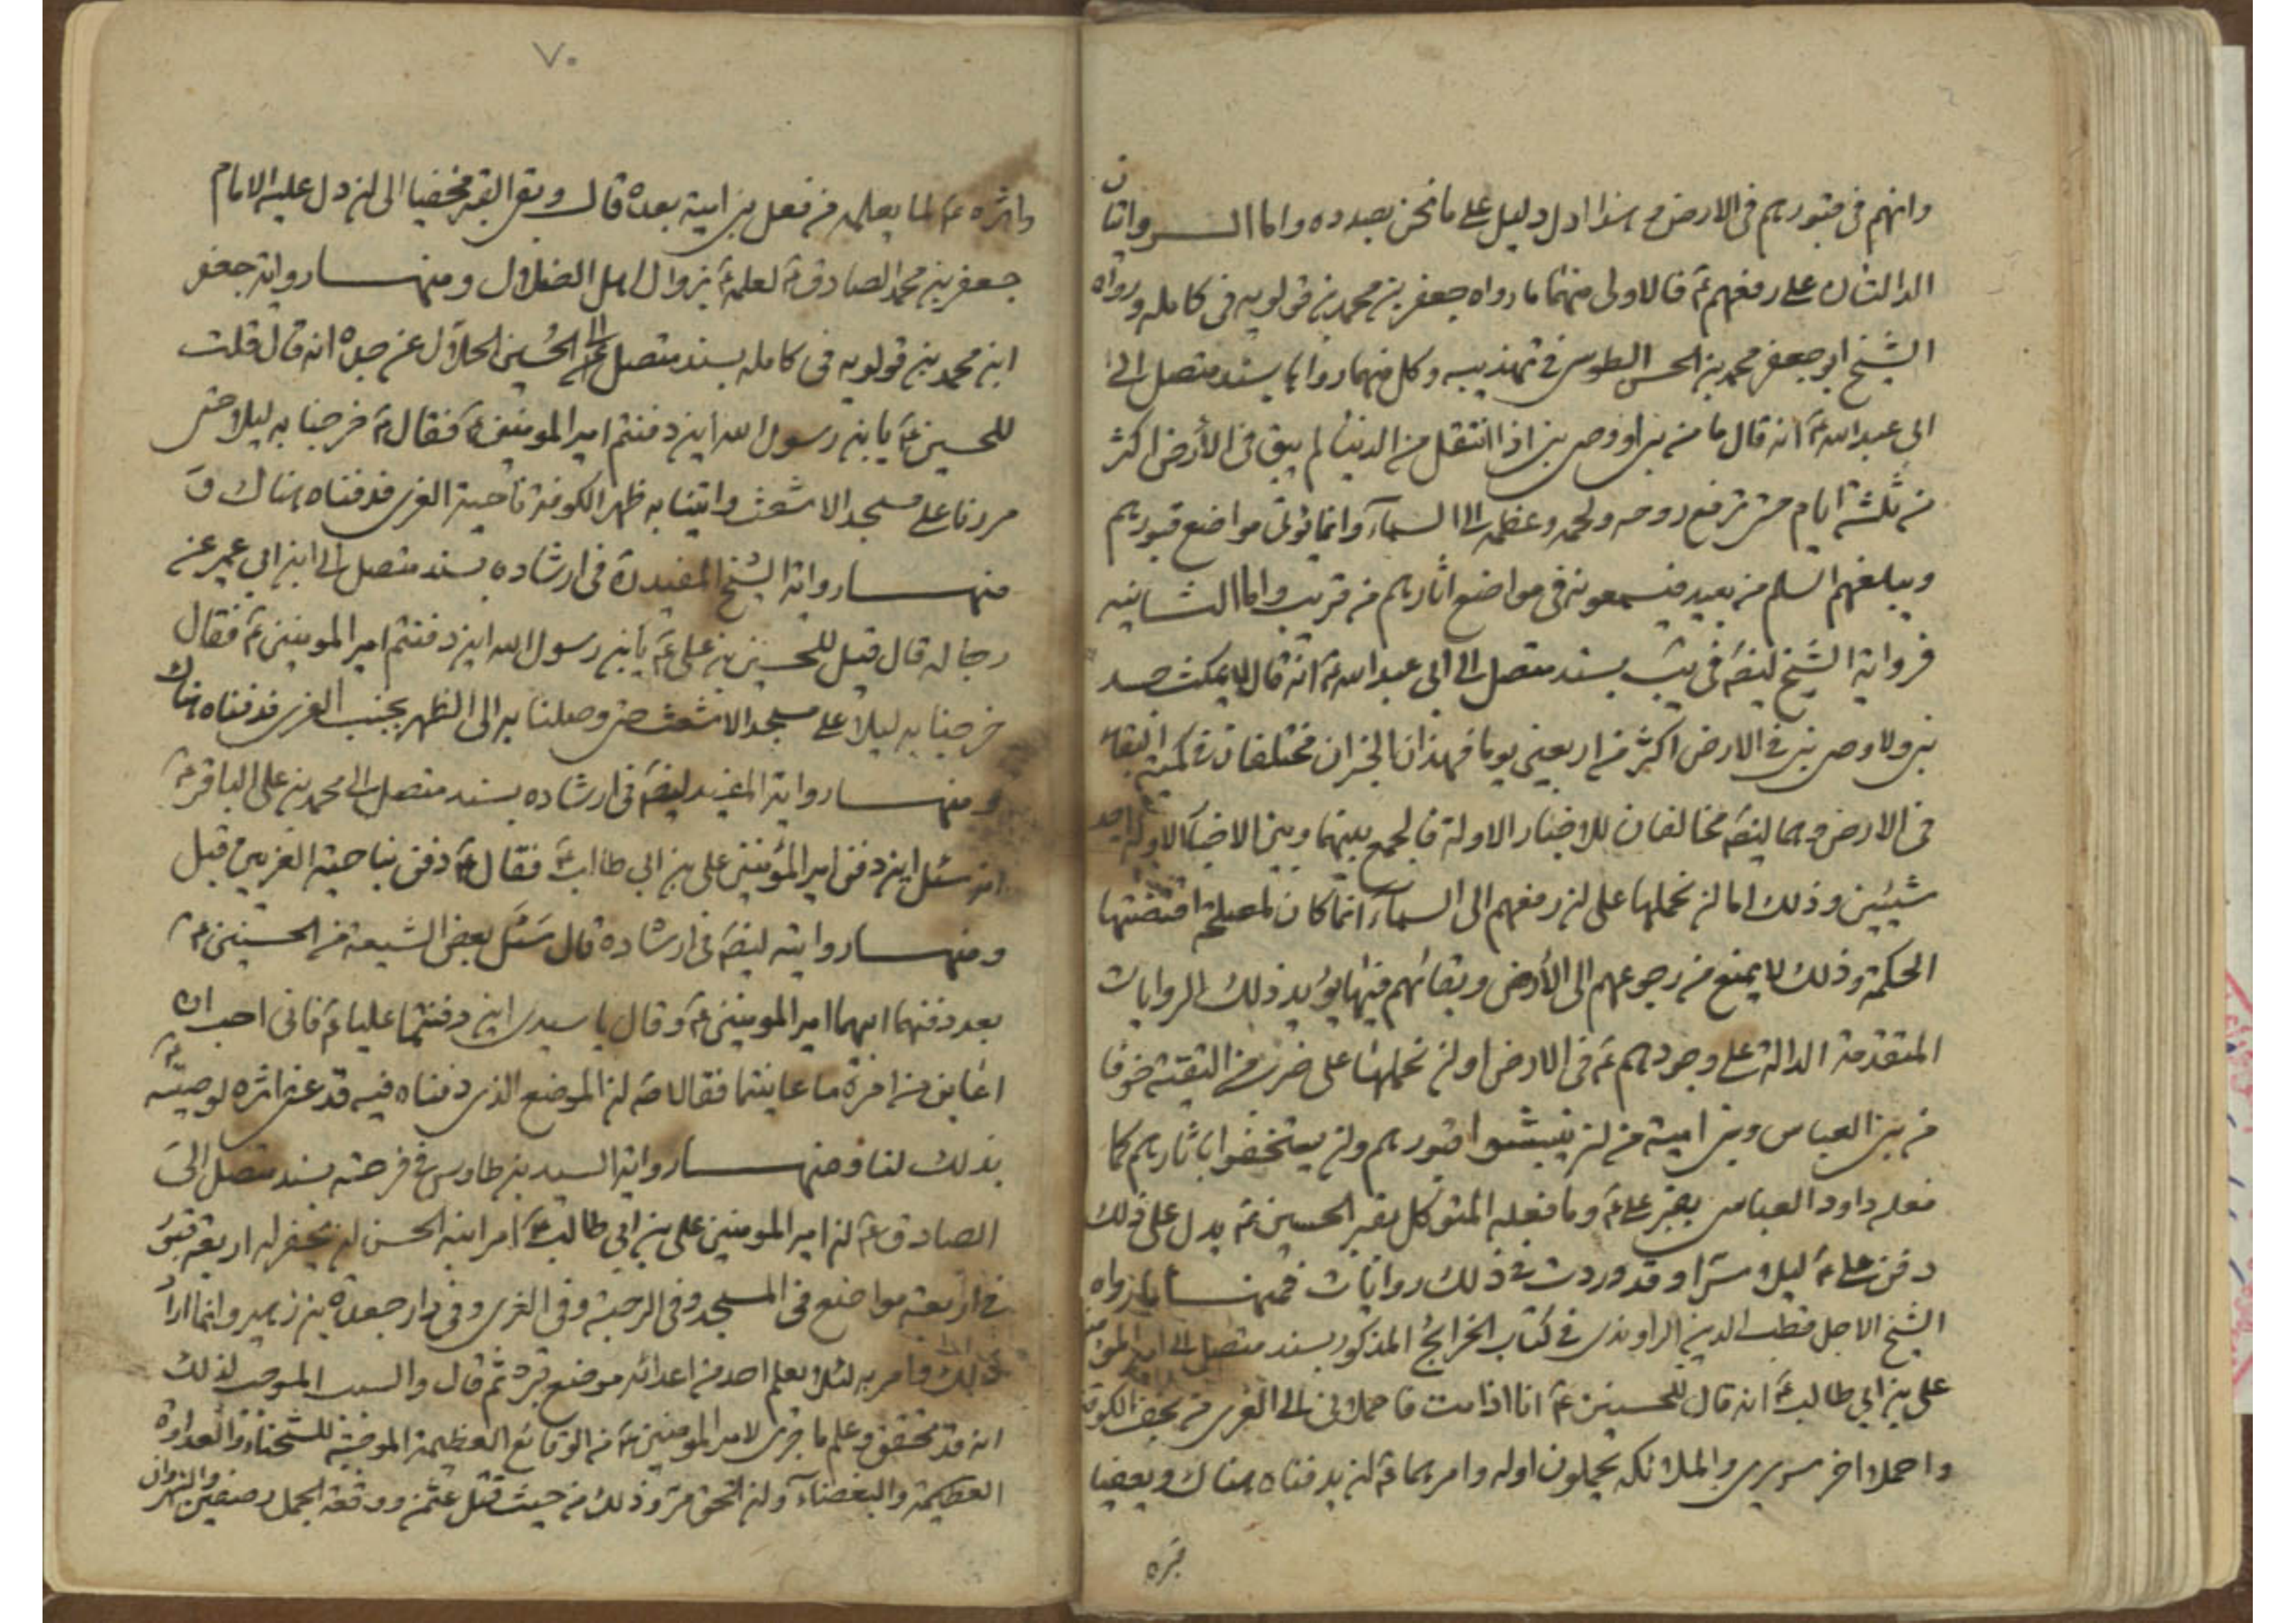 وانهم فى قبورهم فى الارض و هذا ادل دليل على ما نحن بصدده واما الروايتان
الدالتان على رفعهم ع فالاولى منهما ما رواه جعفر بن محمد بن قولويه فى كامله ورواه
الشيخ ابو جعفر محمد بن الحسن الطوسى فى تهذيبه وكل منهما رواها بسند متصل الى
ابى عبد الله ع انه قال ما من نبى او وصى نبى اذا انتقل من الدنيا لم يبق فى الأرض اكثر
من ثلثة ايام حتى ترفع روحه ولحمه وعظمه الى السمآء وانما تؤتى مواضع قبورهم
ويبلغهم السلم من بعيد فيسمعونه فى مواضع اثارهم من قريب واما الثانيه
فرواية الشيخ ايضً فى يب بسند متصل الى ابى عبد الله ع انه قال لا يمكث جسد
نبى ولا وصى نبى فى الارض اكثر من اربعين يوما فهذان الخبران مختلفان فى كمية البقاء
فى الارض وهما ايضً مخالفان للاخبار الاولة فالجمع بينهما وبين الاخبار الاولة احد
شيئين وذلك اما ان نحملها على ان رفعهم الى السمآء انما كان لمصلحة اقتضتها
الحكمة وذلك لا يمنع من رجوعهم الى الأرض وبقائهم فيها يؤيد ذلك الروايات
المتقدمة الدالة على وجودهم ع فى الارض او ان نحملها على ضرب من التقية خوفا
من بنى العباس وبنى امية من ان ينبشوا قبورهم وان يستخفوا باثارهم كما
فعله داود العباسى بقبر على ع وما فعله المتوكل بقبر الحسين ع يدل على ذلك
دفن على ع ليلا سرا وقد وردت فى ذلك روايات فمنها ما رواه
الشيخ الاجل قطب الدين الراوندى فى كتاب الخرائج المذكور بسند متصل الى امير المؤمنين
على بن ابى طالب ع انه قال للحسنين ع انا اذا مت فاحملانى الى الغرى من نجف الكوفة
واحملا اخر سريرى والملائكه يحملون اوله وامرهما ع ان يدفناه هناك ويعفيا
قبره
٧٠
واثره ع لما يعلمه من فعل بنى امية بعده قال وبقى القبر مخفيا الى ان دل عليه الامام
جعفر بن محمد الصادق ع لعلمه ع بزوال اهل الضلال ومنها رواية جعفر
ابن محمد بن قولويه فى كامله بسند متصل الى الحسين الحلال عن جده انه قال قلت
للحسين ع يا بن رسول الله اين دفنتم امير المومنين ع فقال ع خرجنا به ليلا حتى
مررنا على مسجد الاشعث واتينا به ظهر الكوفة ناحية الغرى فدفناه هناك و
منها رواية الشيخ المفيد ره فى ارشاده بسند متصل الى ابن ابى عمير عن
رجاله قال قيل للحسين بن على ع يا بن رسول الله اين دفنتم امير المومنين ع فقال
خرجنا به ليلا على مسجد الاشعث حتى وصلنا به الى الظهر بجنب الغرى فدفناه هناك
ومنها رواية المفيد ايضً فى ارشاده بسند متصل الى محمد بن على الباقر ع
انه سئل اين دفن امير المؤمنين على بن ابى طالب ع فقال ع دفن بناحية الغريين قبل
ومنها روايته ايضً فى ارشاده قال سئل بعض الشيعة من الحسنين ع
بعد دفنهما ابيهما امير المومنين ع وقال يا سيدى اين دفنتما عليا ع فانى احب ان
اعاين من امره ما عاينتما فقالا له ان الموضع الذى دفناه فيه قد عفى اثره لوصيته ع
بذلك لنا ومنها رواية السيد بن طاوس فى فرحته بسند متصل الى
الصادق ع ان امير المومنين على بن ابى طالب ع امر ابنه الحسن ان يحفر له اربعة قبور
فى اربعة مواضع فى المسجد وفى الرحبة وفى الغرى وفى دار جعدة بن زهير وانما اراد
ذلك وامر به لئلا يعلم احد من اعدائه موضع قبره ثم قال والسبب الموجب لذلك
انه قد تحقق وعلم ما جرى لامير المومنين ع من الوقائع العظيمة الموجبة للشحناء والعداوة
العظيمة والبغضآء وان الحق مر وذلك من حيث قتل عثمن ووقعة الجمل وصفين والنهروان